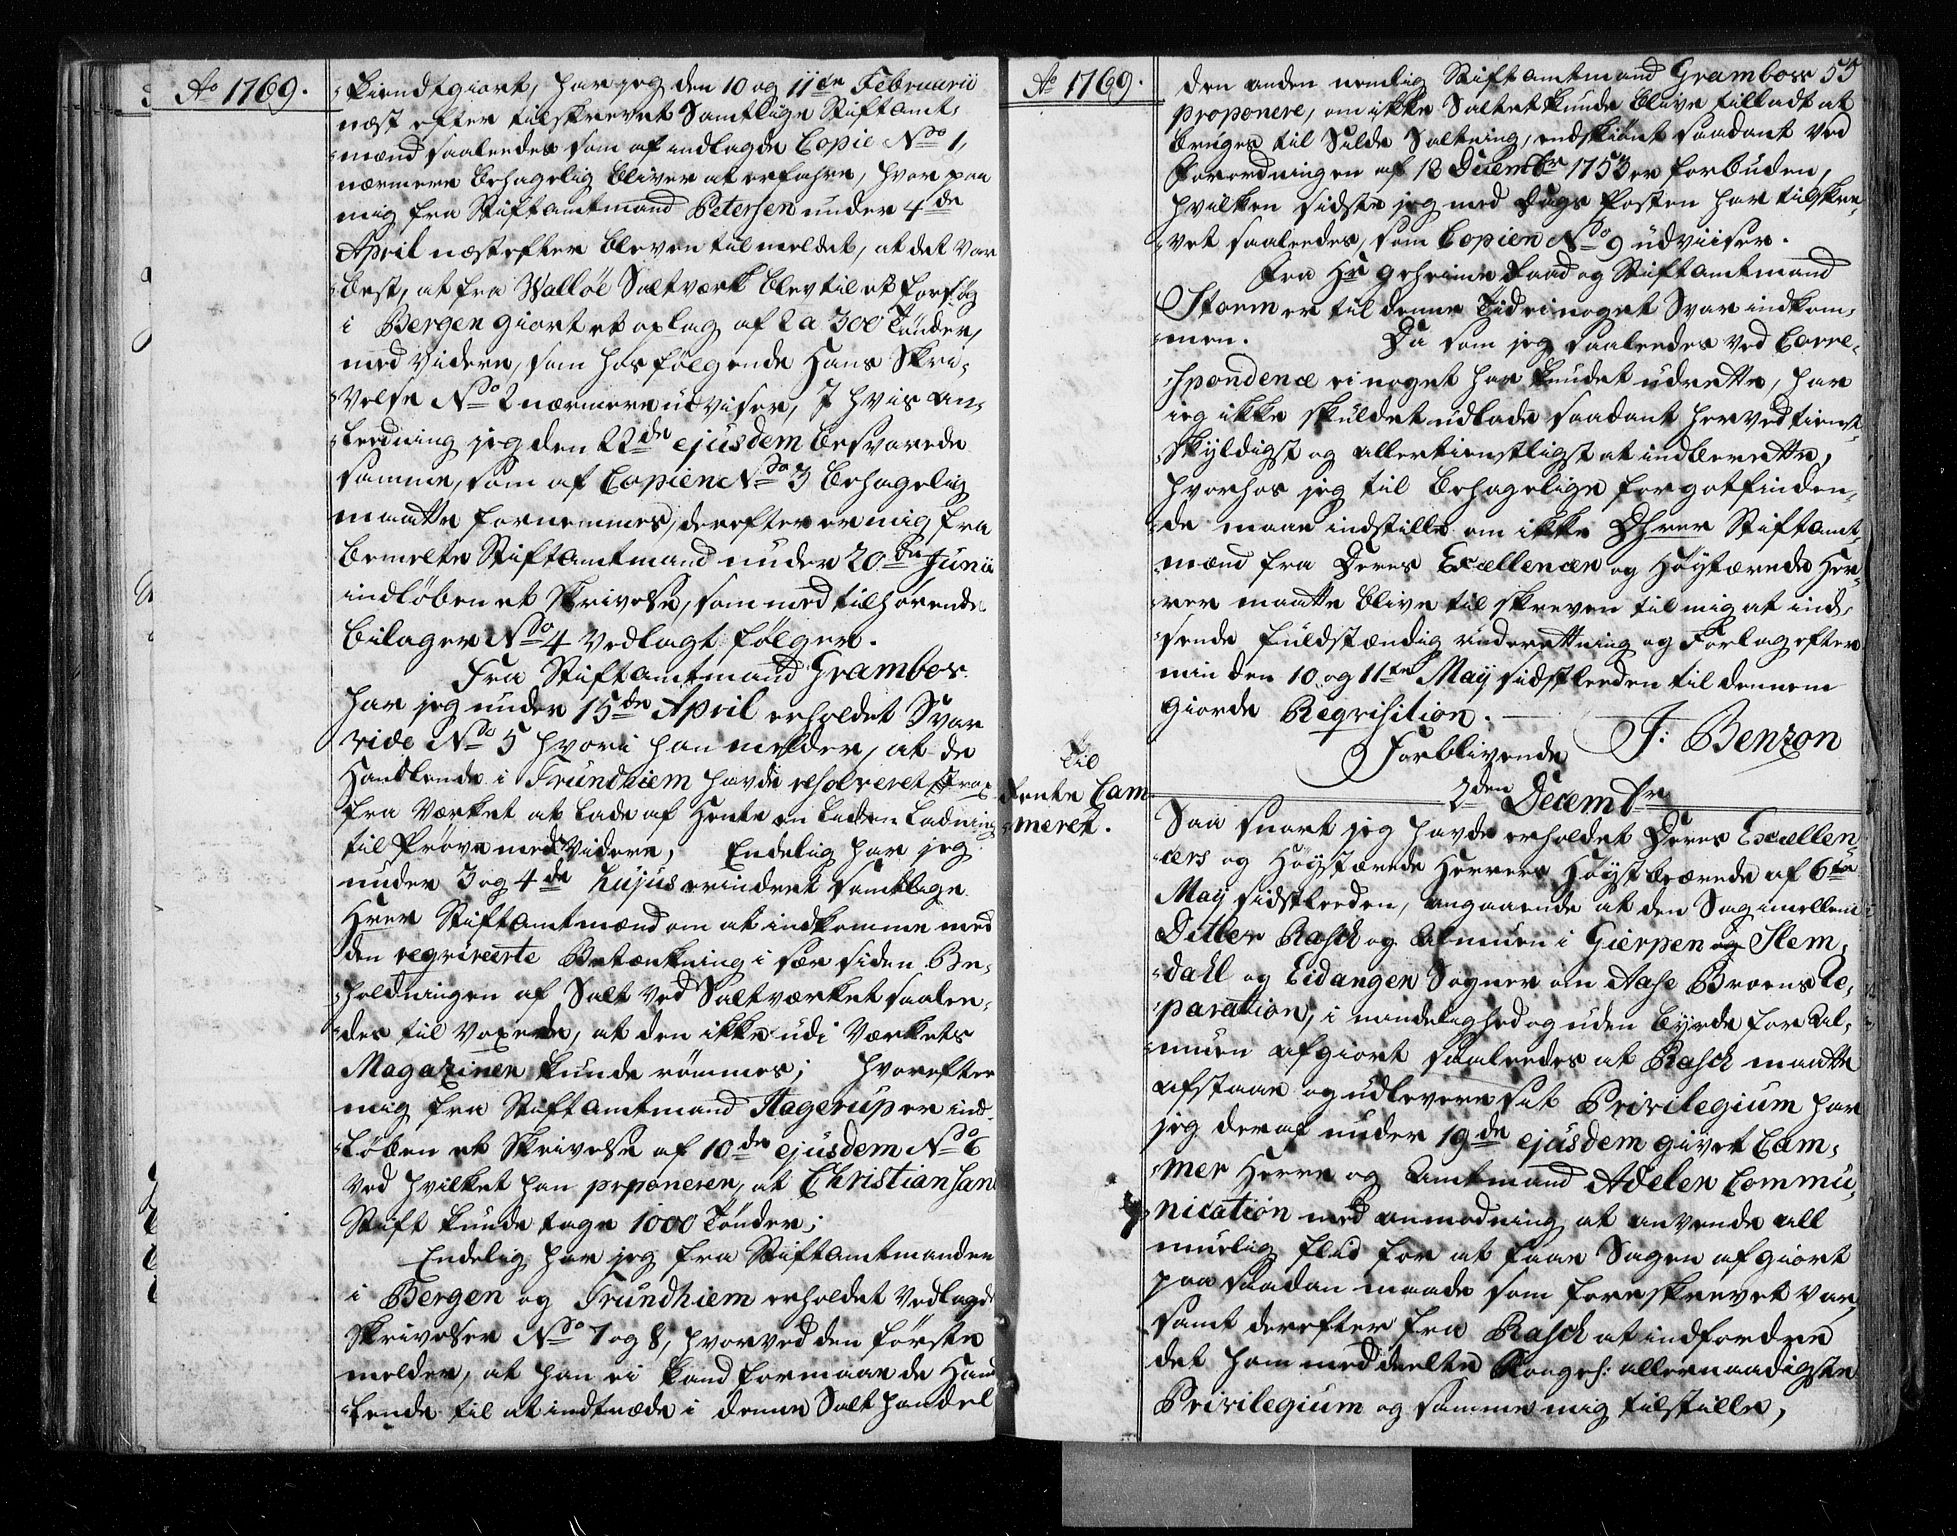 Ao 1769.
-kiendtgiort, har jeg den 10 og 11te Februarii
næst efter tilskrevet Samtlige Stiftamt-
-mænd saaledes som af indlagde Copie No 1,
nærmere behagelig bliver at erfahre, hvor paa
mig fra Stiftamtmand Petersen under 4de
April næstefter bleven tilmeldet, at det var
best, at fra Walløe Saltværk blev til et forsøg
i Bergen giort et oplag af 2 a 300 Tønder,
med videre, som hosfølgende Hans Skri-
-velse No 2 nærmere udviser, I hvis an-
-leedning jeg den 22de ejusdem besvarede
samme, som af Copien No 3 behagelig
maatte fornemmes, derefter er mig fra
bemelte Stiftamtmand under 20de Junii
indløben et Skrivelse, som med tilhørende
bilager No 4 vedlagt følger.
Fra Stiftamtmand Grambos
har jeg under 15de April erholdet Svar
vide No 5 hvori han melder, at de
Handlende i Trundhiem havde resolveret strax
fra Værket at lade af Hente en liden Ladning
til Prøve med Videre, Endelig har jeg
under 3 og 4de hujus erindret samtlige
Hrer Stiftamtmænd om at indkomme med
den reqvireerte Betænkning i sær siden Be-
-holdningen af Salt ved Saltværket saale-
-des til voxede, at den ikke udi Værkets
Magaziner kunde rømmes; hvorefter
mig fra Stiftamtmand Hagerup er ind-
-løben et Skrivelse af 10de ejusdem No 6
ved hvilket han prponerer, at Christiansand
Stift kunde tage 1000 Tønder;
Endelig har jeg fra Stiftamtmanden
i Bergen og Trundhiem erholdet vedlagde
Skrivelser No 7 og 8, hvorved den første
melder, at han ei kand formaae de Hand-
-lende til at indtræde i denne Salt handel
Ao 1769.
den anden nemlig Stiftamtmand Gramboss 55
proponere, om ikke Saltet kunde blive tilladt at
bruges til Silde Saltning, endskiønt saadant ved
Forordningen af 18 Decembr 1753 er forbuden,
hvilken sidste jeg med Dags Posten har tilskre-
-vet saaledes, som Copien No 9 udviiser.
Fra Hr geheime Raad og Stiftamtmand
Storm er til denne Tid ei noget Svar indkom-
-men. Da som jeg saaledes ved Corre-
-spondence ei noget har kundet udrette, har
ieg ikke skuldet udlade saadant herved tienst-
-skyldigst og allertienstligst at indberette,
hvorhos jeg til behagelige forgotfinden-
-de maae indstille om ikke Dhrer Stiftamt-
-mænd fra Deres Excellencer og Høystærede Her-
-rer maatte blive til skreven til mig at ind-
-sende fuldstændig underettning og Forlag efter
min den 10 og 11te May sidstleeden til dennem
giorde Reqvisition.
Forblivende J: Benzon
2den Decembr
Til
Rente Cam
-meret.
Saa snart jeg havde erholdet Deres Excellen-
-cers og Høystærede Herrers Høystbeærede af 6te
May sidstleeden, angaaende at den Sag imellem
Ditlev Rasch og Almuen i Gierpen og Slem-
-dahl og Eidanger Sogner om Aase Broens Re-
-paration, i mindelighed og uden Byrde for Al-
-muen afgiort saaledes at Rasch maatte
afstaae og udlevere sit Privilegium har
jeg deraf under 19de ejusdem givet Cam-
-mer Herre og Amtmand Adeler Commu-
-nication med anmodning at anvende all
muelig flid for at faae Sagen afgiort
paa saadan maade som foreskrevet var,
samt derefter fra Rasch at indfordre
det ham meddeelte Kongel: allernaadigste
Privilegium og samme mig tilstille,